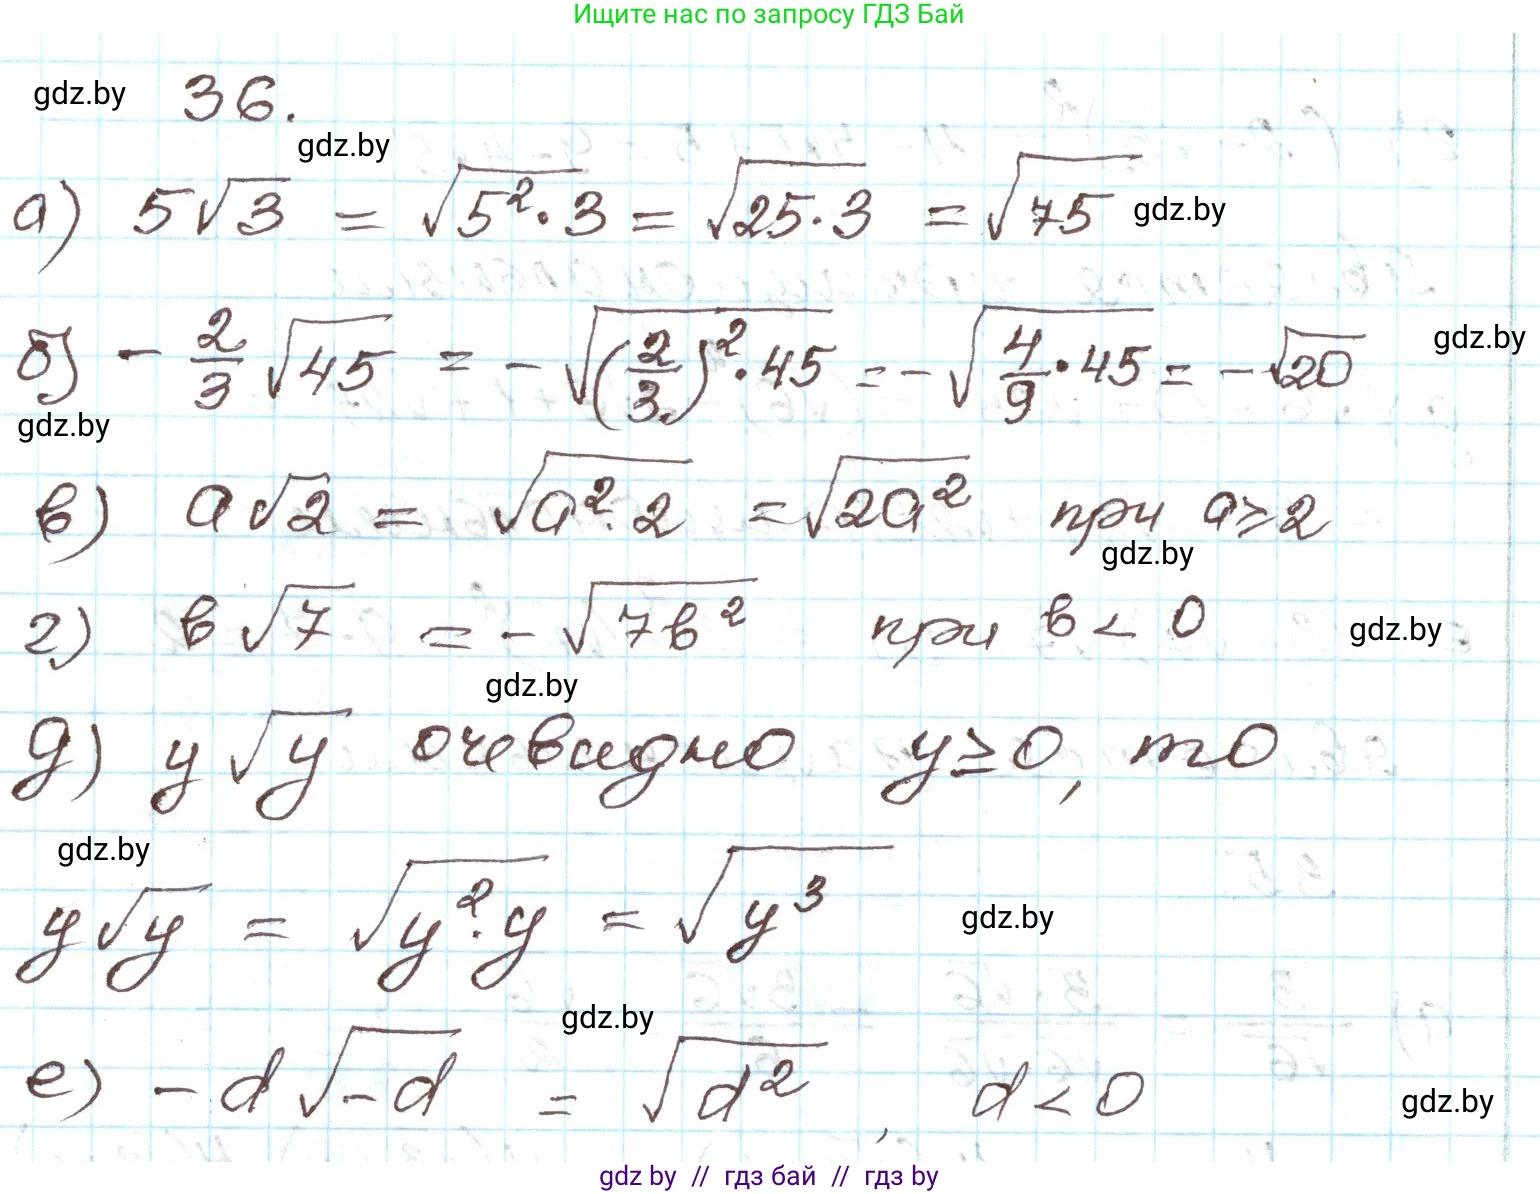 Ищите нас по запросу ГДЗ Бай
gdz.by 36.
gdz.by
а) 5√3 = √(5²·3) = √(25·3) = √75 gdz.by
б) - 2/3 √45 = - √((2/3)²·45) = - √(4/9·45) = - √20 gdz.by
gdz.by
в) a√2 = √(a²·2) = √(2a²) при a≥2
gdz.by
г) в√7 = - √(7в²) при в < 0 gdz.by
gdz.by
д) y√y очевидно y≥0, то
gdz.by
y√y = √(y²·y) = √(y³) gdz.by
gdz.by
е) -d√(-d) = √(d²), d < 0 gdz.by
gdz by // гдз бай // гдз by